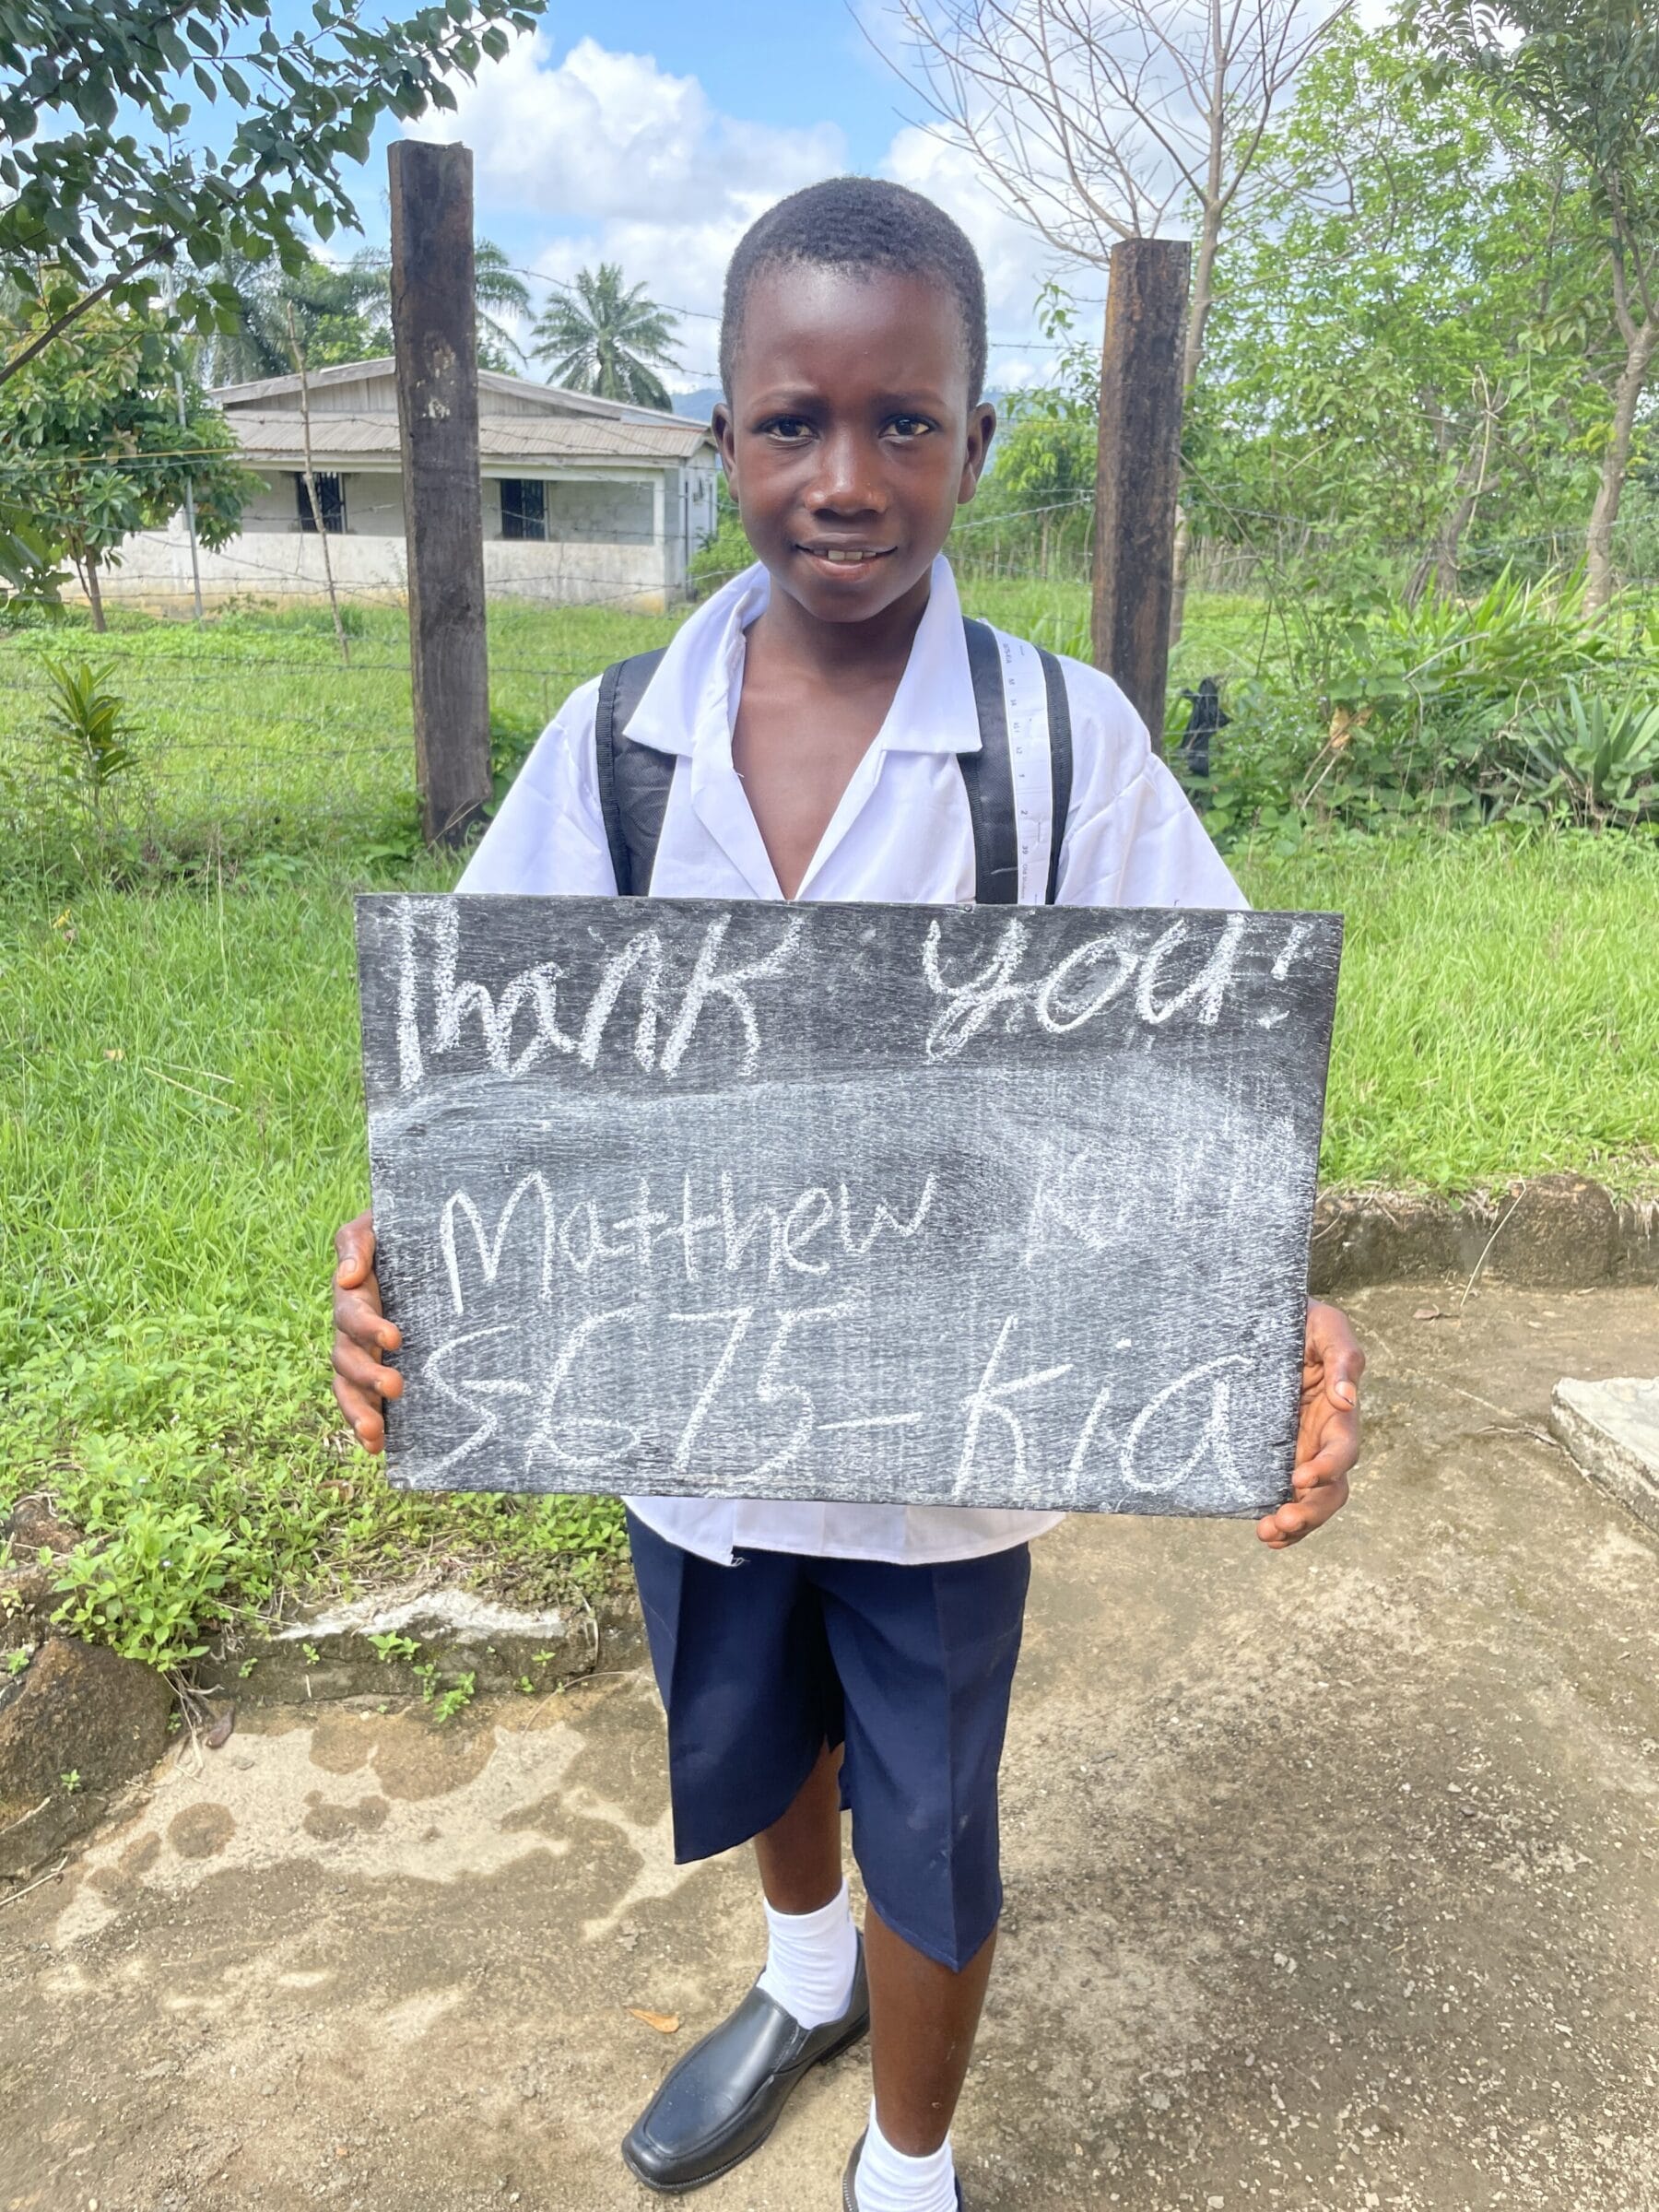 Thank you!
Matthew
SL75-Kia